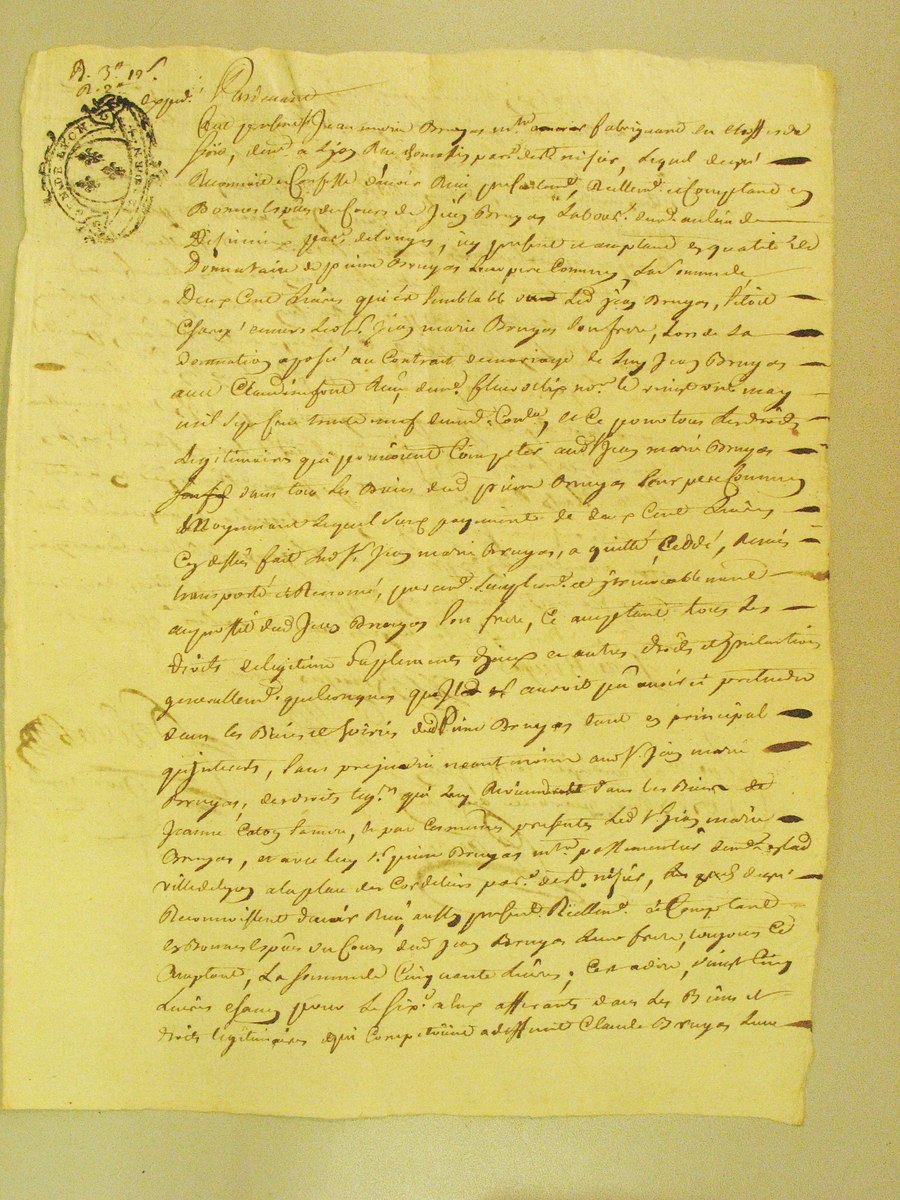 R. 3
expéd.
Pardevant
fut présent Jean marie Bruyas m.tre fabriquant en étoffes de
soie, dem.t à Lyon Rue parr.e de St nisier, Lequel de gré
Reconnoit et Confesse d'avoir Reçu présentem.t, Réellem.t et Comptant en
Bonnes Espèces du Cours de Jean Bruyas Labour.r dem.t au lieu de
parr.e de Longes, icy présent et acceptant en qualité de
Donnataire de pierre Bruyas Leur pere Commun La Somme de
Deux Cent Livres qui est semblable que Led. Jean Bruyas, s'étoit
Chargé envers Led. Sr. Jean marie Bruyas son frere, Lors de La
donnation aposée au Contrat de mariage de Luy Jean Bruyas
avec Claudine font Reçu dum.e not.e le vingt onze may
mil Sept Cent trente neuf duem.t Contr.lé, et Ce pour tous Les droits
Légitimaires qui pouvoient Compéter aud. Sr. Jean marie Bruyas
dans tous Les Biens dud. pierre Bruyas Leur pere Commun
& Moyennant Lequel Susd. payement de deux Cent Livres
Cy dessus fait Led. Sr. Jean marie Bruyas, a quitté, Ceddé, Remis
transporté et Renoncé, purem.t. Simplem.t. et irrévocablement
au proffit dud. Jean Bruyas Son frere, Ce acceptant tous Les
droits de Légitime Suplements d'iceux et autres droits et prétentions
generallem.t quelconques qu'Il auroit pu avoir et pretendre
dans les Biens et hoiries dud. Pierre Bruyas tant en principal
qu'interets, Sans préjudice neantmoins aud. Sr. Jean marie
Bruyas, des droits Leg.res qui Luy Reviendront dans les Biens de
Jeanne Caton Sa mere, & par Ces mêmes présentes Led. Sr. Jean marie
Bruyas, et avec luy Sr. pierre Bruyas m.tre passementier dem.t en lad.
ville de Lyon a la place des Cordeliers par.e de St. nisier, Les quels de gré
Reconnoissent d'avoir Reçu aussy présent.t Réellem.t et Comptant
en Bonnes Espèces du Cours dud. Jean Bruyas Leur frere, toujours Ce
acceptant, La Somme de Cinquante Livres, C'est a dire, vingt Cinq
Livres chacun pour Le Six.e a Eux afférants dans Les Biens et
droits Légitimaires qui Compétoient a deffunt Claude Bruyas Leur